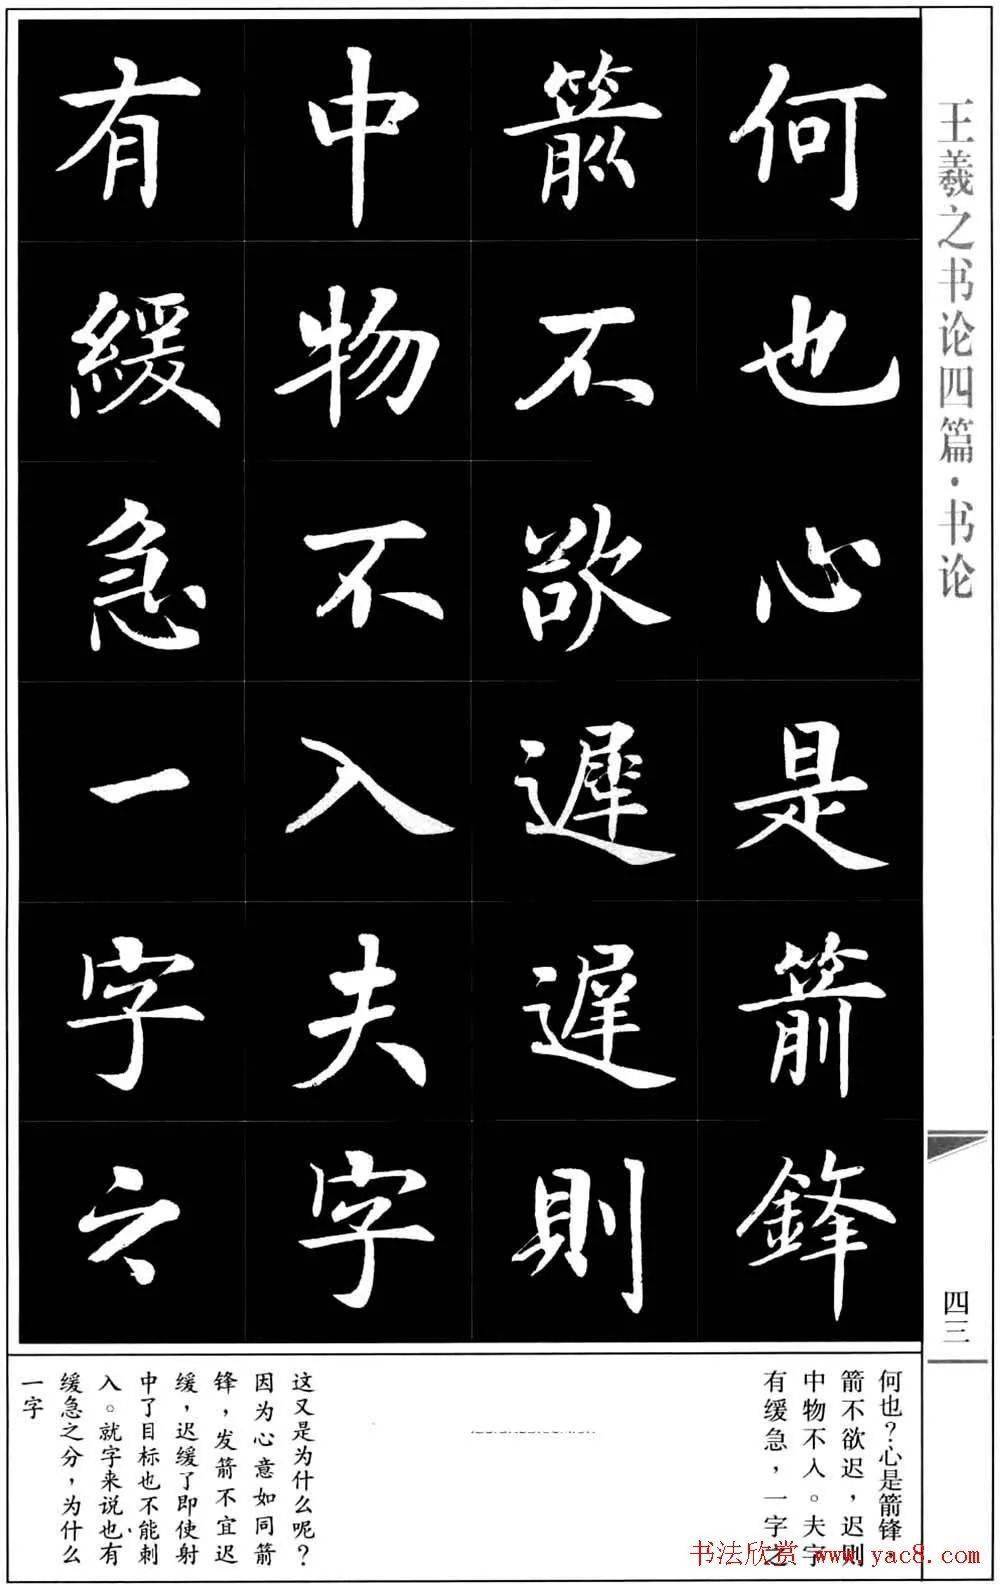 何也心是箭鋒
箭不欲遲遲則
中物不入夫字
有緩急一字之
王羲之书论四篇·书论
四三
何也？心是箭锋，
箭不欲迟，迟则
中物不入。夫字
有缓急，一字之
这又是为什么呢？
因为心意如同箭
锋，发箭不宜迟
缓，迟缓了即使射
中了目标也不能刺
入。就字来说也有
缓急之分，为什么
一字
书法欣赏 www.yac8.com